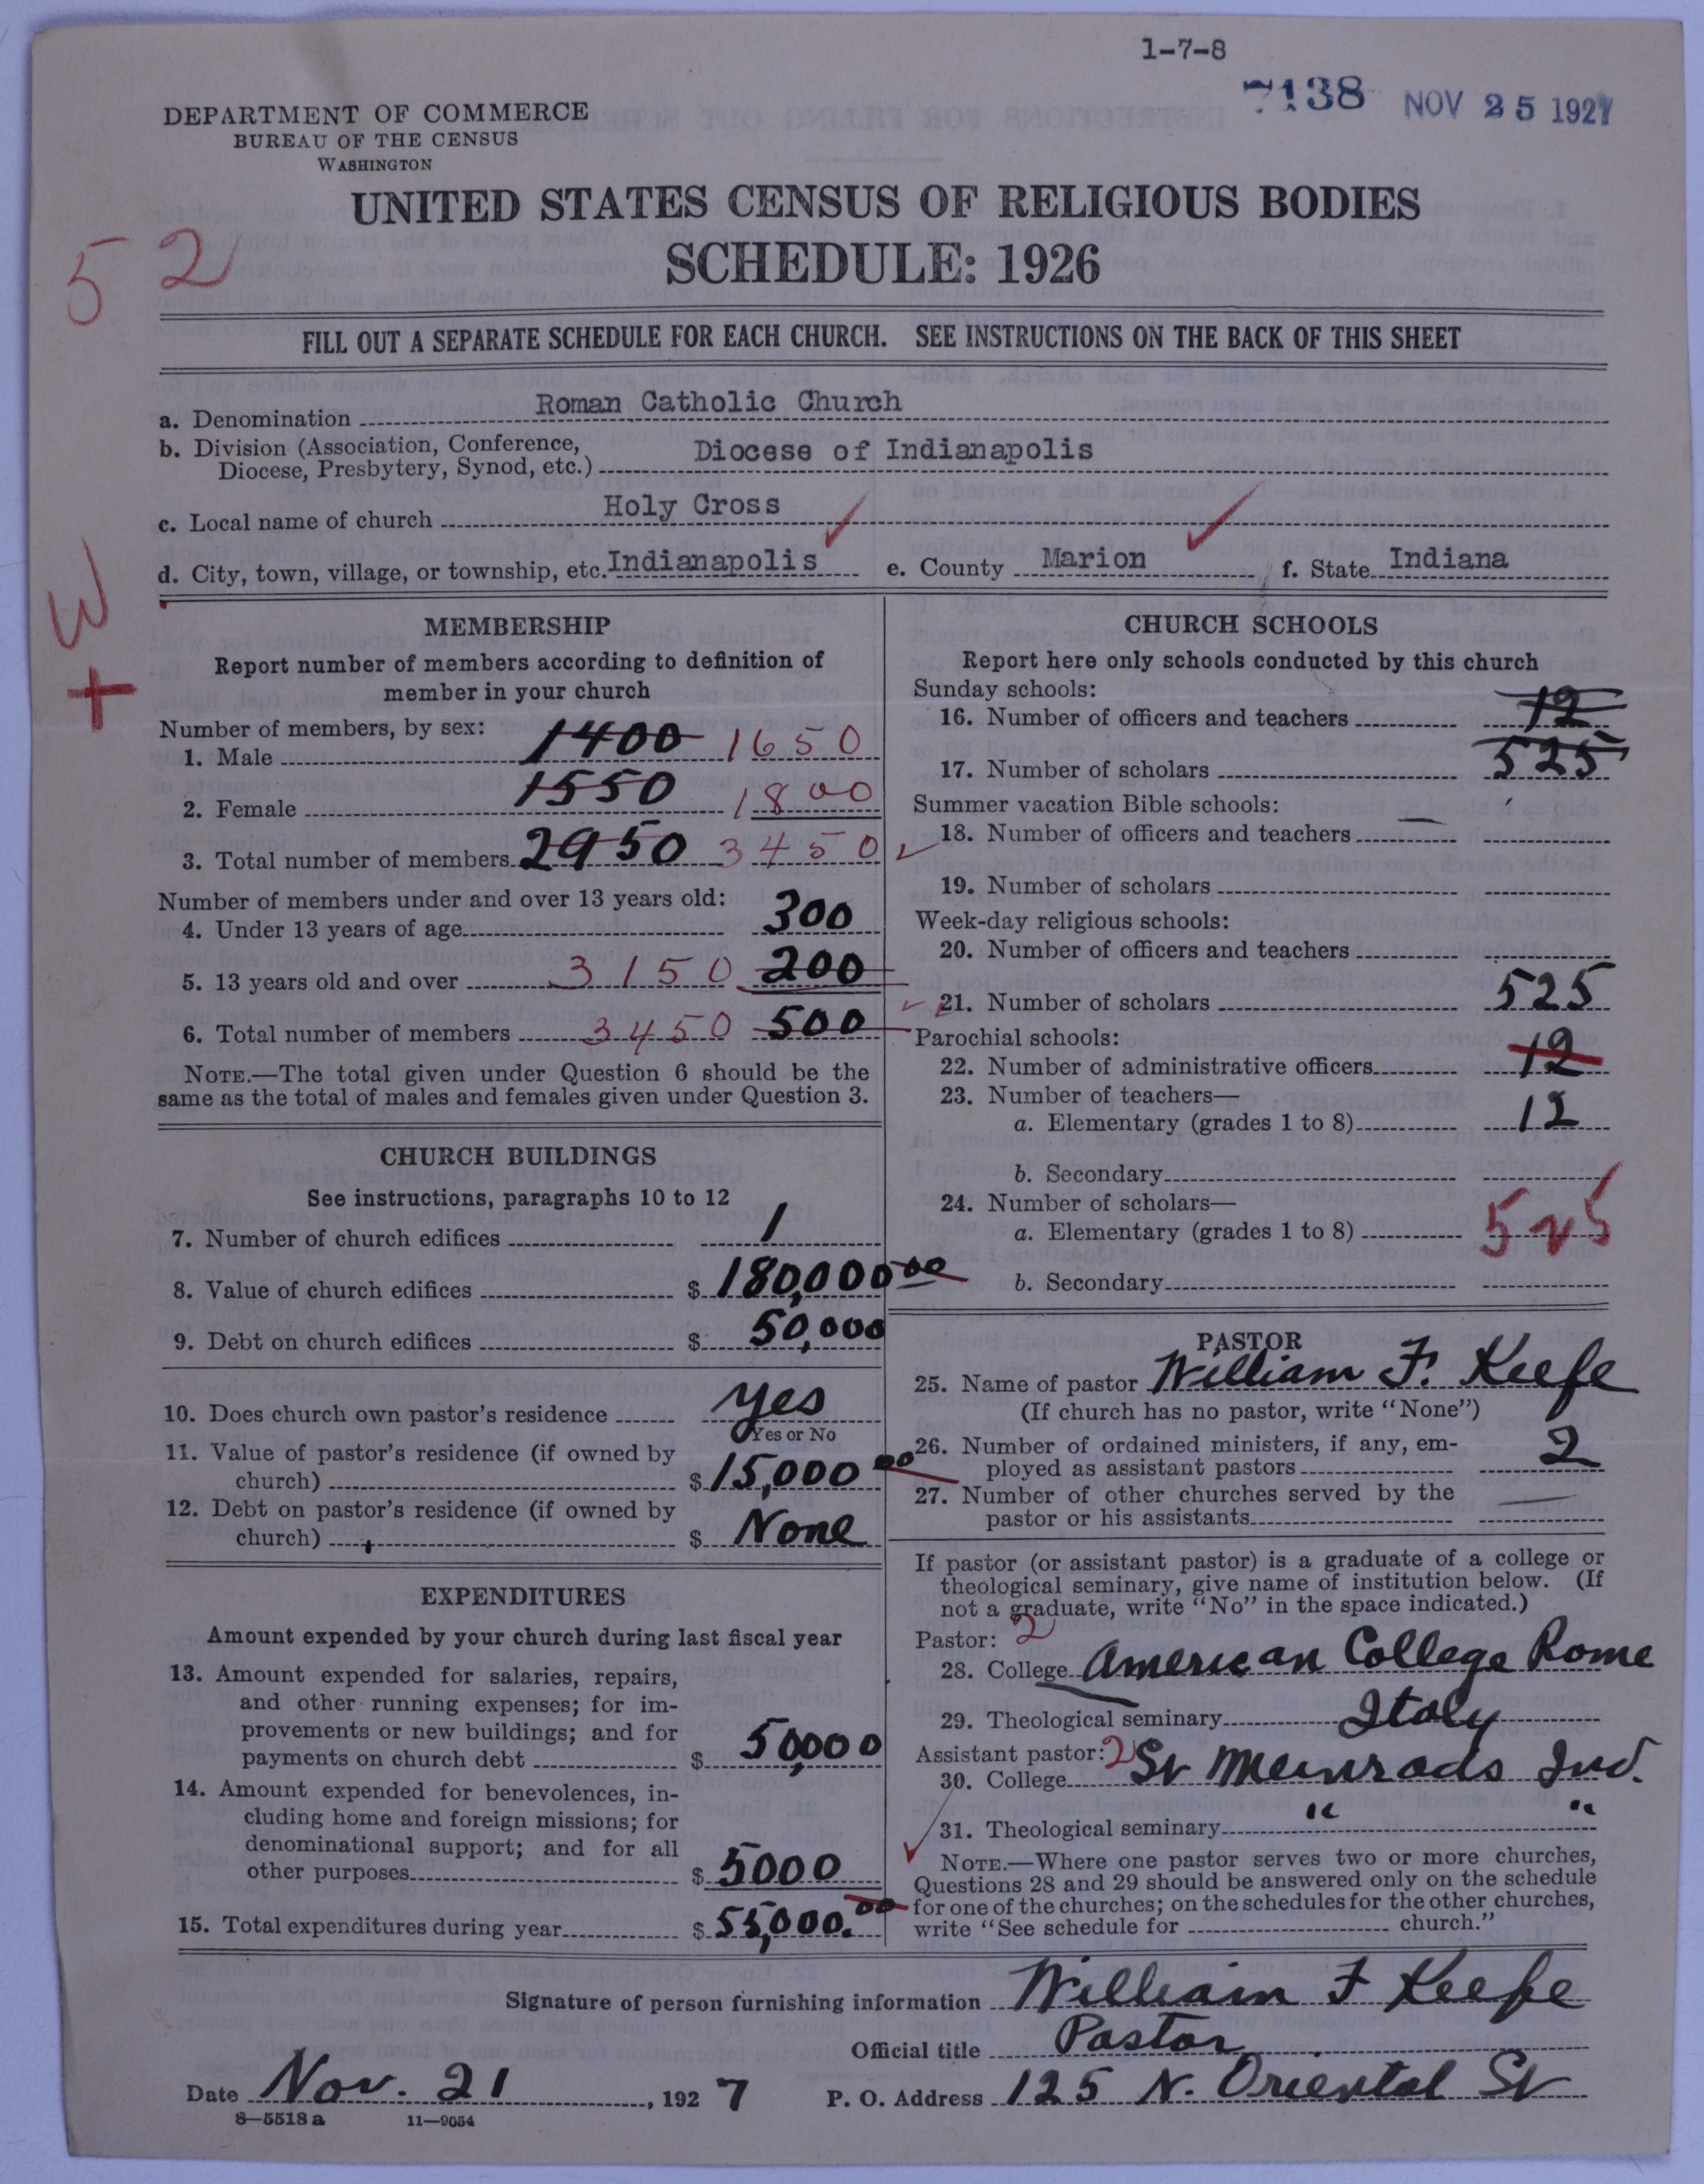 1-7-8
7138 NOV 25 1927
DEPARTMENT OF COMMERCE
BUREAU OF THE CENSUS
WASHINGTON
UNITED STATES CENSUS OF RELIGIOUS BODIES
SCHEDULE: 1926
52
FILL OUT A SEPARATE SCHEDULE FOR EACH CHURCH. SEE INSTRUCTIONS ON THE BACK OF THIS SHEET
a. Denomination Roman Catholic Church
b. Division (Association, Conference,
Diocese, Presbytery, Synod, etc.) Diocese of Indianapolis
c. Local name of church Holy Cross
d. City, town, village, or township, etc. Indianapolis e. County Marion f. State Indiana
W
+
MEMBERSHIP
Report number of members according to definition of
member in your church
Number of members, by sex:
1. Male 1400 1650
2. Female 1550 1800
3. Total number of members 2950 3450
Number of members under and over 13 years old:
4. Under 13 years of age 300
5. 13 years old and over 3150 200
6. Total number of members 3450 500
NOTE.—The total given under Question 6 should be the
same as the total of males and females given under Question 3.
CHURCH BUILDINGS
See instructions, paragraphs 10 to 12
7. Number of church edifices 1
8. Value of church edifices $ 180,000 00
9. Debt on church edifices $ 50,000
10. Does church own pastor's residence yes
Yes or No
11. Value of pastor's residence (if owned by
church) $ 15,000 00
12. Debt on pastor's residence (if owned by
church) $ None
EXPENDITURES
Amount expended by your church during last fiscal year
13. Amount expended for salaries, repairs,
and other running expenses; for im-
provements or new buildings; and for
payments on church debt $ 50,000
14. Amount expended for benevolences, in-
cluding home and foreign missions; for
denominational support; and for all
other purposes $ 5000
15. Total expenditures during year $ 55,000.00
CHURCH SCHOOLS
Report here only schools conducted by this church
Sunday schools:
16. Number of officers and teachers 12
17. Number of scholars 525
Summer vacation Bible schools:
18. Number of officers and teachers —
19. Number of scholars
Week-day religious schools:
20. Number of officers and teachers
21. Number of scholars 525
Parochial schools:
22. Number of administrative officers 12
23. Number of teachers—
a. Elementary (grades 1 to 8) 12
b. Secondary
24. Number of scholars—
a. Elementary (grades 1 to 8) 525
b. Secondary
PASTOR
25. Name of pastor William F. Keefe
(If church has no pastor, write "None")
26. Number of ordained ministers, if any, em-
ployed as assistant pastors 2
27. Number of other churches served by the
pastor or his assistants —
If pastor (or assistant pastor) is a graduate of a college or
theological seminary, give name of institution below. (If
not a graduate, write "No" in the space indicated.)
Pastor: 2
28. College American College Rome
29. Theological seminary Italy
Assistant pastor: 2
30. College St Meinrads Ind.
31. Theological seminary " "
NOTE.—Where one pastor serves two or more churches,
Questions 28 and 29 should be answered only on the schedule
for one of the churches; on the schedules for the other churches,
write "See schedule for church."
Signature of person furnishing information William F Keefe
Official title Pastor
Date Nov. 21, 1927 P. O. Address 125 N. Oriental St
8—5518 a 11—9054